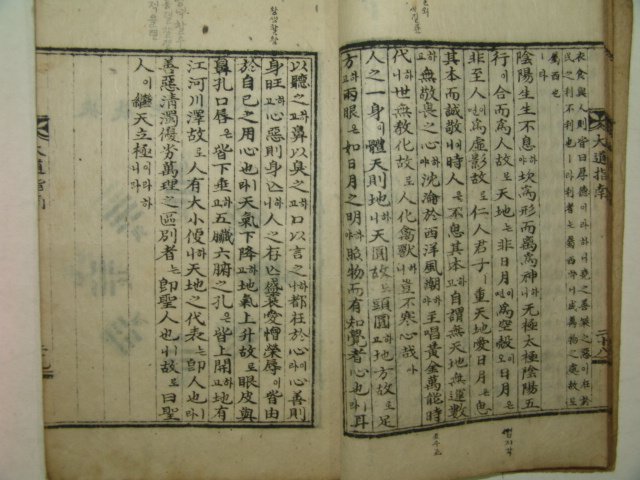 衣食與人則皆曰厚德이라하니堯之善桀之惡이在於
民之利不利也라利者는萬西也니라成萬物之處故로
萬西也
니라
陰陽生生不息하야坎爲形而離爲神하니無極太極陰陽五
行이合而爲人故로天地는非日月이면爲空殼오日月은
非至人이면爲虛影故로仁人君子는重天地愛日月은
其本而誠敬이니時人은不息其本하고自謂無天地無運數
하고無敬畏之心하야沈淪於西洋風潮하야主唱黃金萬能時
代하니世無敎化故로人化禽獸하니豈不寒心哉아
人之一身이體天則地하니天圓故로頭圓하고地方故로足
方하고兩眼은如日月之明하야眼物而有知覺者는心也라耳
大道指南
二十八
以聽之하고鼻以臭之하고口以言之하나都在於心하니心善則
身旺하고心惡則身亡하나니人之存亡盛衰愛憎榮辱이皆由
於自己之用心也니天氣下降하고地氣上升故로眼皮與
鼻孔口唇은皆下垂하고五臟六腑之孔은皆上開하고地有
江河川澤故로人有大小便하니天地之代表는卽人也라
善惡淸濁優劣萬理之區別者는卽聖人也故로曰聖
人이繼天立極이라하니라
大道指南